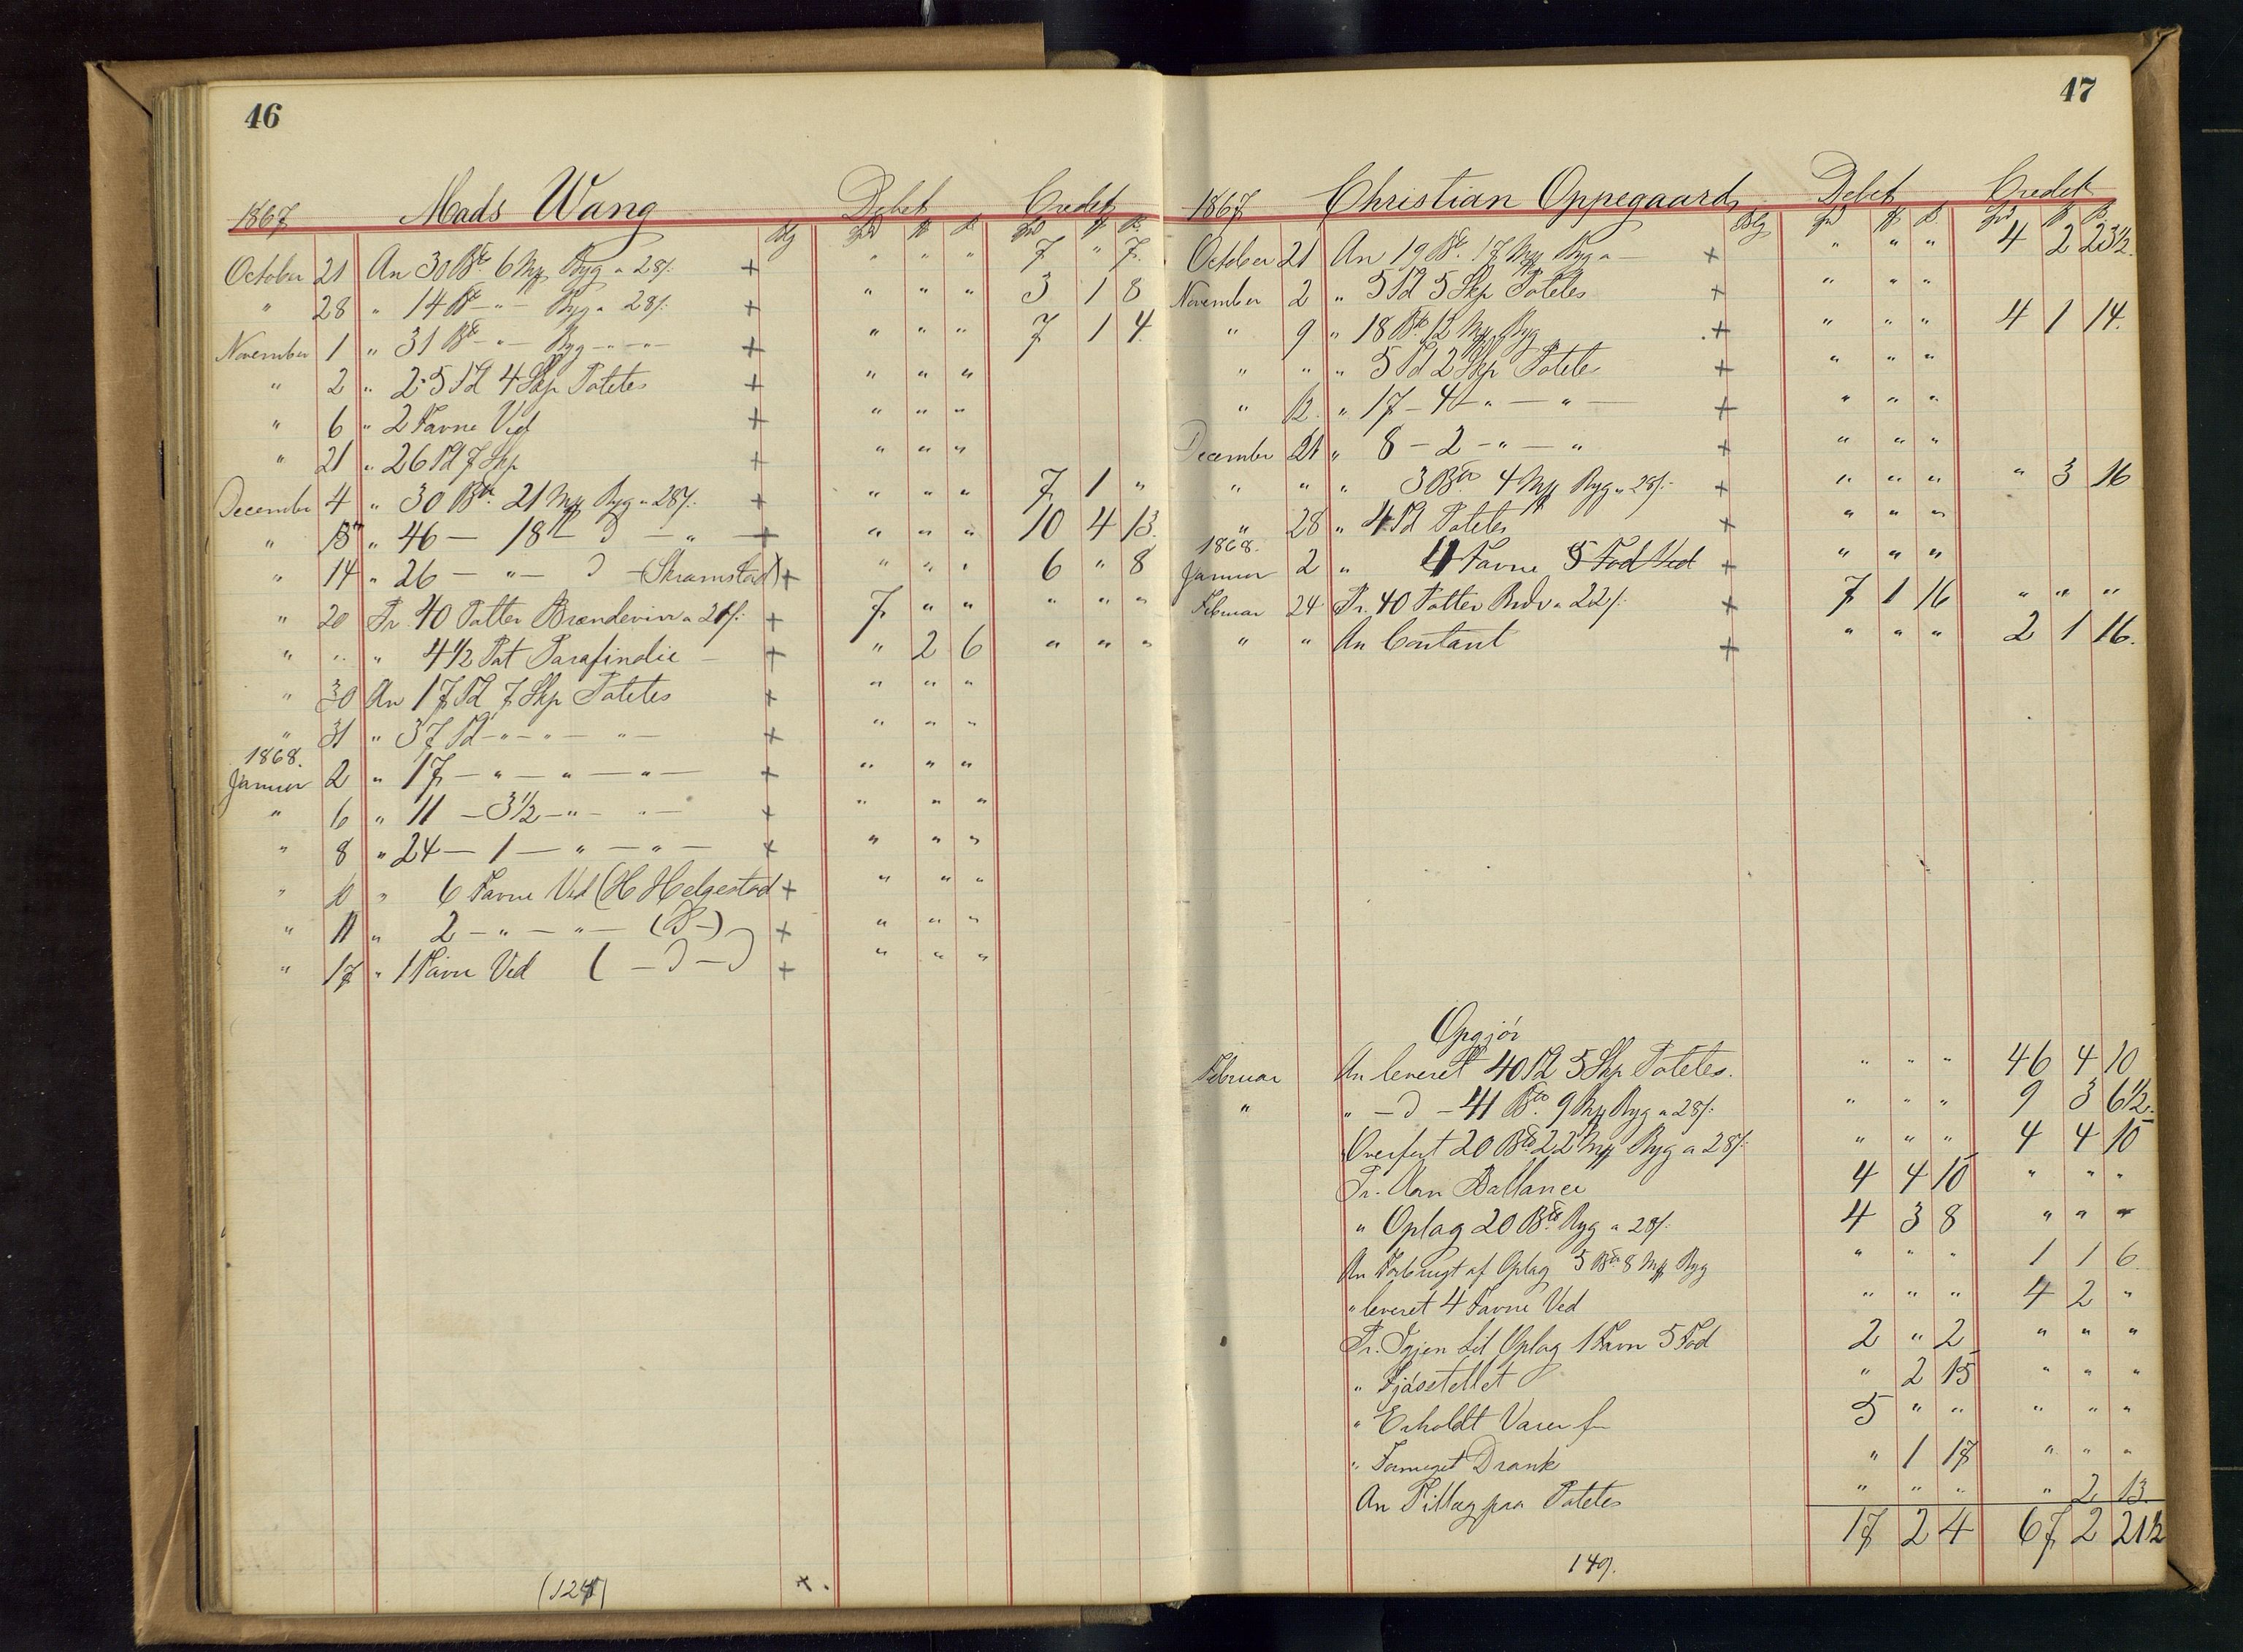 46
1867 Mads Wang Debet Credit
October 21 An 30 Btr 6 Mk Byg a 28/: + " " " 7 " 7
" 28 " 14 Bt - " - Byg a 28/: + " " " 3 1 8
November 1 " 31 Btr - " - Byg - " - " - + " " " 7 1 4
" 2 " 25 Td 4 Skp Potetes + " " "
" 6 " 2 Favne Ved + " " "
" 21 " 26 Td 7 Skp + " " "
December 4 " 30 Btr 21 Mk Byg a 28/: + " " " 7 1 "
" 13 " 46 — 18 — — " — + " " " 10 4 13
" 14 " 26 — " — (Skramstad) + " " " 6 " 8
" 20 Pr 40 Potter Brændeviin a 21/: + 7 " " " " "
" " " 4 1/2 Pot Parafinolie — + " 2 6 " " "
" 30 An 17 Td 7 Skp Potetes + " " "
" 31 " 37 Td - " - " - " - + " " "
1868.
Januar 2 " 17 — " — " — " — + " " "
" 6 " 11 — 3 1/2 — " — " — + " " "
" 8 " 24 — 1 — " — " — + " " "
" 10 " 6 Favne Ved (H Helgestad + " " "
" 11 " 2 — " — " — + " " "
" 17 " 1 Favn Ved + " " "
47
1867 Christian Oppegaard Debet Credit
October 21 An 19 Bt 17 Mk Byg a — + " " " 4 2 23 1/2
November 2 " 5 Td 5 Skp Potetes + " " "
" 9 " 18 Bt 12 Mk Byg + " " " 4 1 14
" " " 5 Td 2 Skp Potetes + " " "
" 12 " 17 — 4 — " — " — + " " "
December 21 " 8 — 2 — " — " + " " "
" " " 3 Btr 4 Mk Byg a 28/: + " " " " 3 16
" 28 " 4 Td Potetes + " " "
1868.
Januar 2 " 4 Favne 5 Fod Ved + " " "
Februar 24 Pr. 40 Potter Brdv a 22/: + 7 1 16 " " "
" " An Contant + " " " 2 1 16
Opgjör
Februar An leveret 40 Td 5 Skp Potetes. " " " 46 4 10
" " — 41 Btr 9 Mk Byg a 28/: " " " 9 3 6 1/2
Overført 20 Btr 22 Mk Byg a 28/: " " " 4 4 10
Pr. Ballance 4 4 10 " " "
" Oplag 20 Btr Byg a 28/: 4 3 8 " " "
An Forbrugt af Oplag 5 Btr 8 Mk Byg " " " 1 1 6
" leveret 4 Favne Ved " " " 4 2 "
Pr. Igjen til Oplag 1 Favn 5 Fod 2 " 2 " " "
" Fjösstellet " 2 15 " " "
" Erholdt Varer f 5 " " " " "
" Formeget Drank " 1 17 " " "
An Tillæg paa Potetes " " " " 2 13
17 2 4 67 2 21 1/2
149.